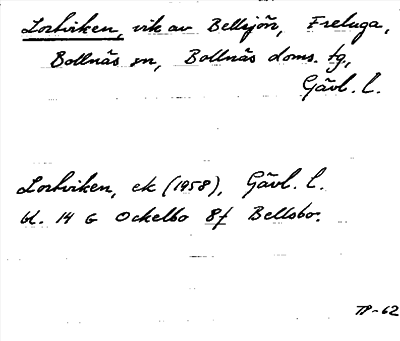 Lortviken, vik av Bellsjön, Freluga,
Bollnäs sn, Bollnäs doms. tg,
Gävl. l.
Lortviken, ek (1958), Gävl. l.
bl. 14 G Ockelbo 8f Bellsbo.
TP-62